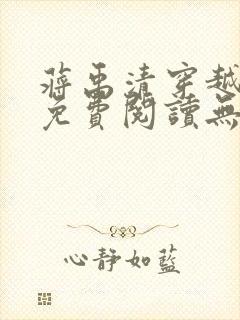 蔣禹清穿越
免費閱讀無
心靜如藍